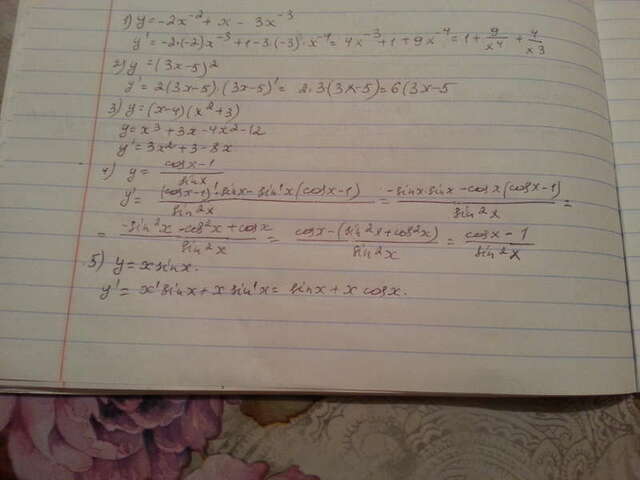 1) y = -2x⁻² + x - 3x⁻³
y' = -2·(-2)x⁻³ + 1 - 3·(-3)·x⁻⁴ = 4x⁻³ + 1 + 9x⁻⁴ = 1 + 9/x⁴ + 4/x³
2) y = (3x-5)²
y' = 2(3x-5)·(3x-5)' = 2·3(3x-5) = 6(3x-5
3) y = (x-4)(x²+3)
y = x³ + 3x - 4x² - 12
y' = 3x² + 3 - 8x
4) y = (cosx - 1)/sinx
y' = ((cosx-1)'sinx - sin'x(cosx-1))/sin²x = (-sinx·sinx - cosx(cosx-1))/sin²x =
= (-sin²x - cos²x + cosx)/sin²x = (cosx - (sin²x + cos²x))/sin²x = (cosx - 1)/sin²x
5) y = x sinx.
y' = x' sinx + x sin'x = sinx + x cosx.